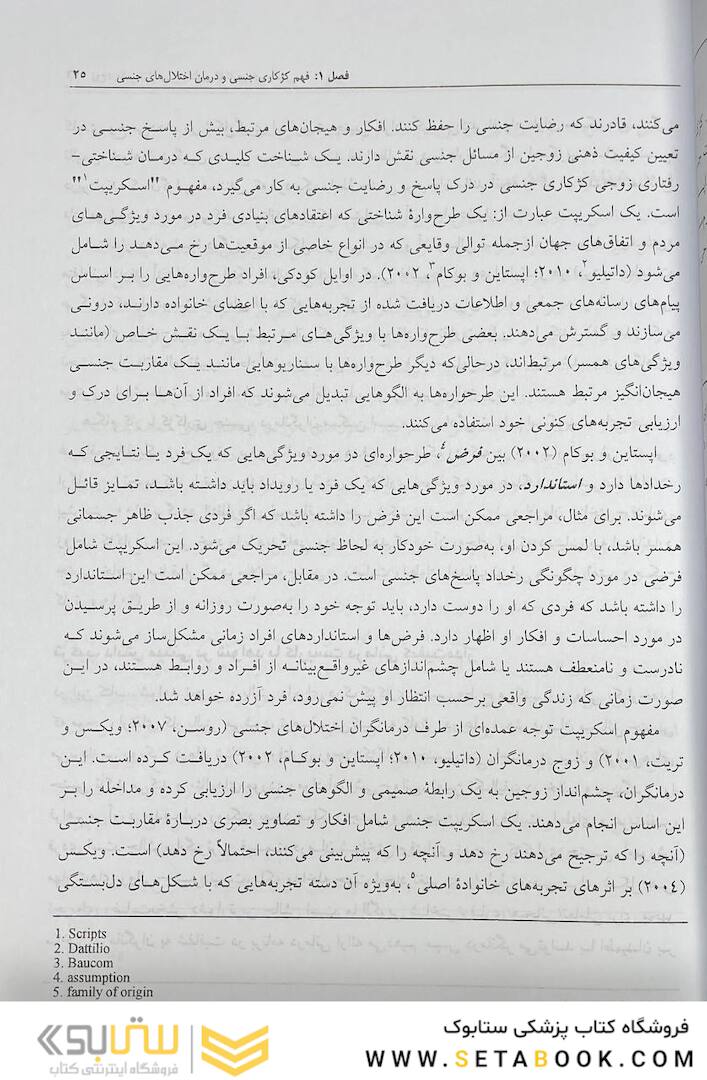 فصل ۱: فهم کژکاری جنسی و درمان اختلال‌های جنسی ۲۵
می‌کنند، قادرند که رضایت جنسی را حفظ کنند. افکار و هیجان‌های مرتبط، بیش از پاسخ جنسی در
تعیین کیفیت ذهنی زوجین از مسائل جنسی نقش دارند. یک شناخت کلیدی که درمان شناختی-
رفتاری زوجی کژکاری جنسی در درک پاسخ و رضایت جنسی به کار می‌گیرد، مفهوم "اسکریپت۱"
است. یک اسکریپت عبارت از: یک طرح‌وارهٔ شناختی که اعتقادهای بنیادی فرد در مورد ویژگی‌های
مردم و اتفاق‌های جهان ازجمله توالی وقایعی که در انواع خاصی از موقعیت‌ها رخ می‌دهد را شامل
می‌شود (داتیلیو۲، ۲۰۱۰؛ اپستاین و بوکام۳، ۲۰۰۲). در اوایل کودکی، افراد طرح‌واره‌هایی را بر اساس
پیام‌های رسانه‌های جمعی و اطلاعات دریافت شده از تجربه‌هایی که با اعضای خانواده دارند، درونی
می‌سازند و گسترش می‌دهند. بعضی طرح‌واره‌ها با ویژگی‌های مرتبط با یک نقش خاص (مانند
ویژگی‌های همسر) مرتبط‌اند، درحالی‌که دیگر طرح‌واره‌ها با سناریوهایی مانند یک مقاربت جنسی
هیجان‌انگیز مرتبط هستند. این طرحواره‌ها به الگوهایی تبدیل می‌شوند که افراد از آن‌ها برای درک و
ارزیابی تجربه‌های کنونی خود استفاده می‌کنند.
اپستاین و بوکام (۲۰۰۲) بین فرض۴، طرحواره‌ای در مورد ویژگی‌هایی که یک فرد یا نتایجی که
رخدادها دارد و استاندارد، در مورد ویژگی‌هایی که یک فرد یا رویداد باید داشته باشد، تمایز قائل
می‌شوند. برای مثال، مراجعی ممکن است این فرض را داشته باشد که اگر فردی جذب ظاهر جسمانی
همسر باشد، با لمس کردن او، به‌صورت خودکار به لحاظ جنسی تحریک می‌شود. این اسکریپت شامل
فرضی در مورد چگونگی رخداد پاسخ‌های جنسی است. در مقابل، مراجعی ممکن است این استاندارد
را داشته باشد که فردی که او را دوست دارد، باید توجه خود را به‌صورت روزانه و از طریق پرسیدن
در مورد احساسات و افکار او اظهار دارد. فرض‌ها و استانداردهای افراد زمانی مشکل‌ساز می‌شوند که
نادرست و نامنعطف هستند یا شامل چشم‌اندازهای غیرواقع‌بینانه از افراد و روابط هستند، در این
صورت زمانی که زندگی واقعی برحسب انتظار او پیش نمی‌رود، فرد آزرده خواهد شد.
مفهوم اسکریپت توجه عمده‌ای از طرف درمانگران اختلال‌های جنسی (روسن، ۲۰۰۷؛ ویکس و
تریت، ۲۰۰۱) و زوج درمانگران (داتیلیو، ۲۰۱۰؛ اپستاین و بوکام، ۲۰۰۲) دریافت کرده است. این
درمانگران، چشم‌انداز زوجین به یک رابطهٔ صمیمی و الگوهای جنسی را ارزیابی کرده و مداخله را بر
این اساس انجام می‌دهند. یک اسکریپت جنسی شامل افکار و تصاویر بصری دربارهٔ مقاربت جنسی
(آنچه را که ترجیح می‌دهند رخ دهد و آنچه را که پیش‌بینی می‌کنند، احتمالاً رخ دهد) است. ویکس
(۲۰۰۴) بر اثرهای تجربه‌های خانوادهٔ اصلی۵، به‌ویژه آن دسته تجربه‌هایی که با شکل‌های دل‌بستگی
1. Scripts
2. Dattilio
3. Baucom
4. assumption
5. family of origin
فروشگاه کتاب پزشکی ستابوک
WWW.SETABOOK.COM
ستابوک
فروشگاه اینترنتی کتاب